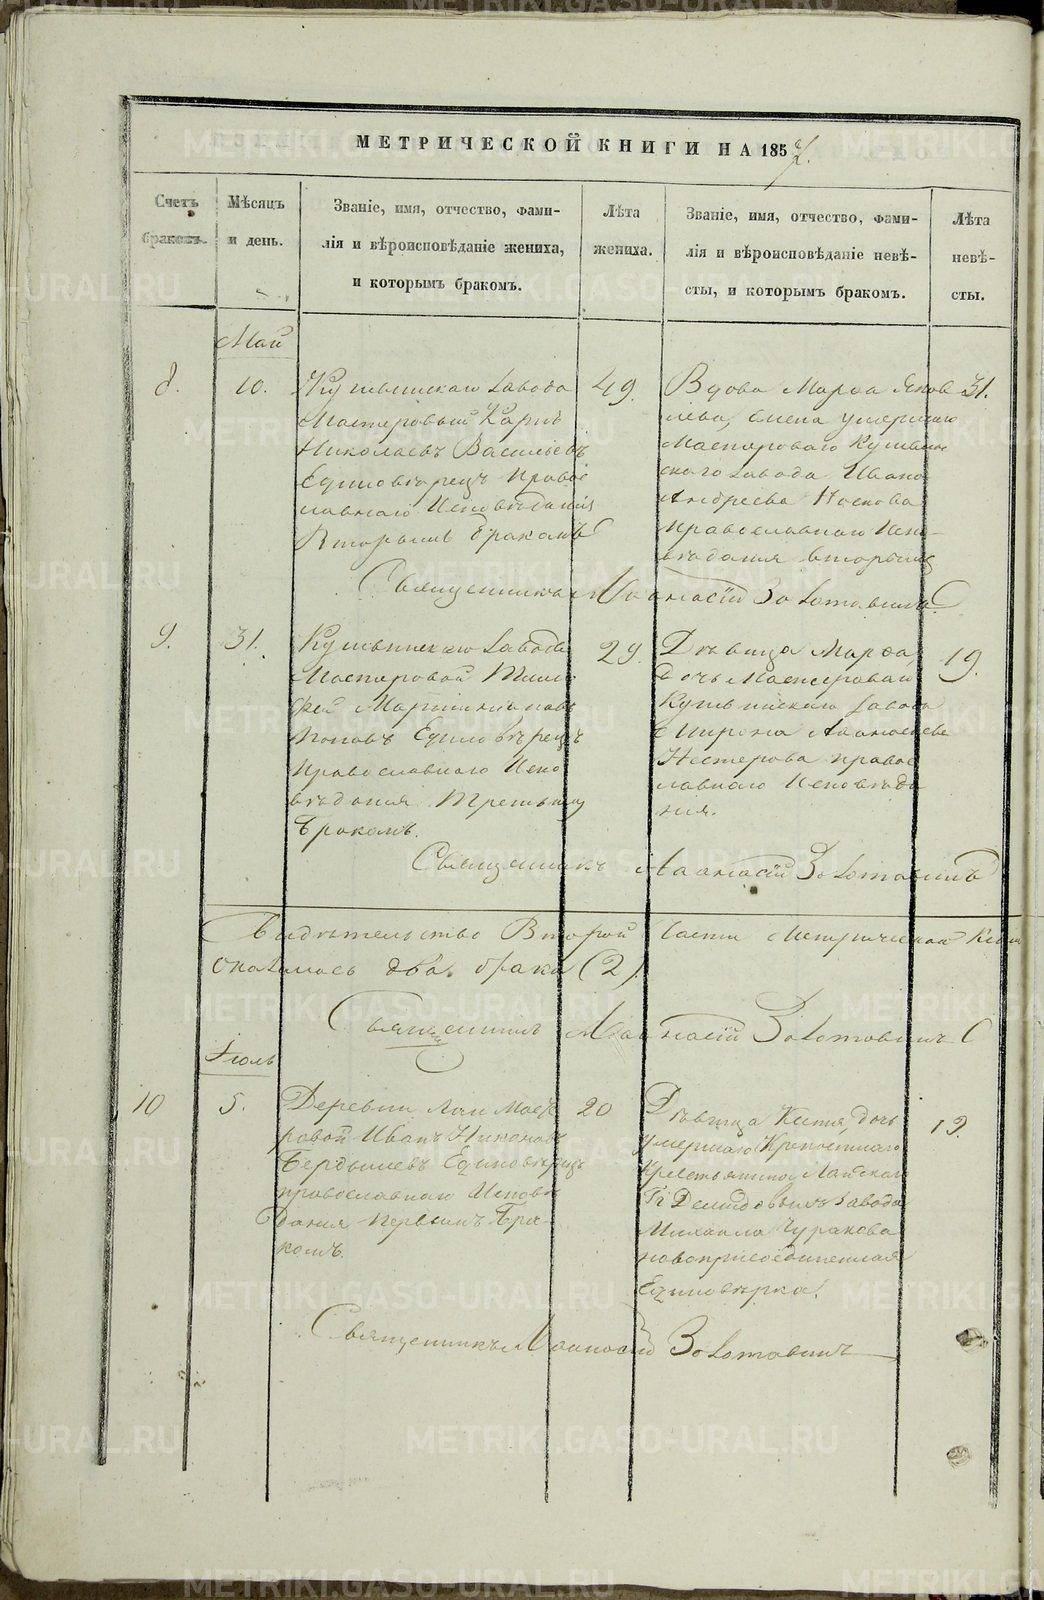 МЕТРИЧЕСКОЙ КНИГИ НА 185
Счетъ браковъ.
Мѣсяцъ и день.
Званіе, имя, отчество, фами-
лія и вѣроисповѣданіе жениха,
и которымъ бракомъ.
Лѣта
жениха.
Званіе, имя, отчество, фами-
лія и вѣроисповѣданіе невѣ-
сты, и которымъ бракомъ.
Лѣта
невѣ-
сты.
Май
8.
10.
Кушвинскаго завода
Мастеровый Карпъ
Николаевъ Васильевъ
Единовѣрецъ право
славнаго Исповѣданія
Вторымъ бракомъ
49.
Вдова Марѳа Яков
лева, жена умершаго
Мастероваго Кушвин
скаго завода Ивана
Андреева Носкова
православнаго Испо-
вѣданія вторымъ
31.
Священникъ Аѳанасій Золотавинъ
9.
31.
Кушвинскаго завода
Мастеровой
Мартиніановъ
Поповъ Единовѣрецъ
православнаго Испо
вѣданія Третьимъ
бракомъ.
29.
Дѣвица Марѳа,
дочь Мастероваго
Кушвинскаго завода
Мирона Аѳанасьева
Нестерова право
славнаго Исповѣда
нія.
19.
Священникъ Аѳанасій Золотавинъ
Свидѣтельство Второй Части Метрической
оказалось два брака (2)
Священникъ Аѳанасій Золотавинъ
Іюль
10
5.
Деревни Лаи Масте
ровой Иванъ Никоновъ
Бердышевъ Единовѣрецъ
православнаго Исповѣ
данія Первымъ Бра-
комъ.
20
Дѣвица Ксенія, дочь
умершаго Крѣпостнаго
Крестьянина Лайскаго
Гг Демидовыхъ завода
Михаила Чуракова
новоприсоединенная
Единовѣрка.
19.
Священникъ Аѳанасій Золотавинъ
METRIKI.GASO-URAL.RU